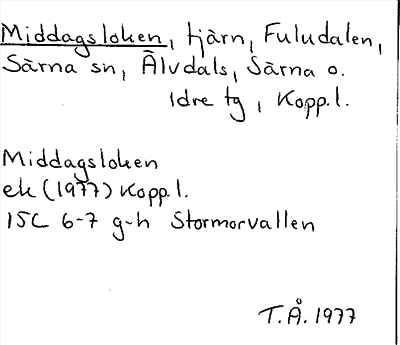 Middagsloken, tjärn, Fuludalen,
Särna sn, Älvdals, Särna o.
Idre tg, Kopp.l.
Middagsloken
ek (1977) Kopp.l.
15C 6-7 g-h Stormorvallen
T.Å. 1977